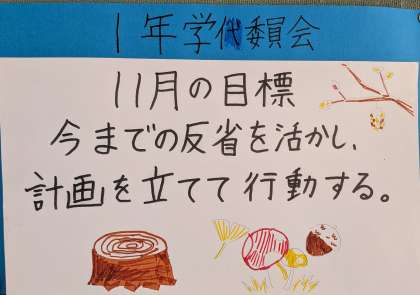 1年学代委員会
11月の目標
今までの反省を活かし、
計画を立てて行動する。